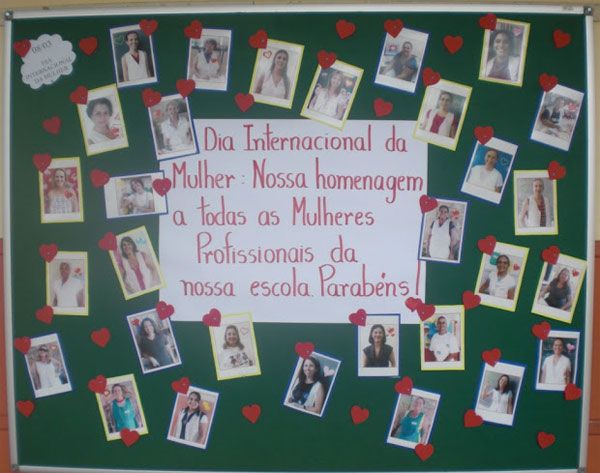 08/03
DIA
INTERNACIONAL
DA MULHER
Dia Internacional da
Mulher: Nossa homenagem
a todas as Mulheres
Profissionais da
nossa escola. Parabéns!